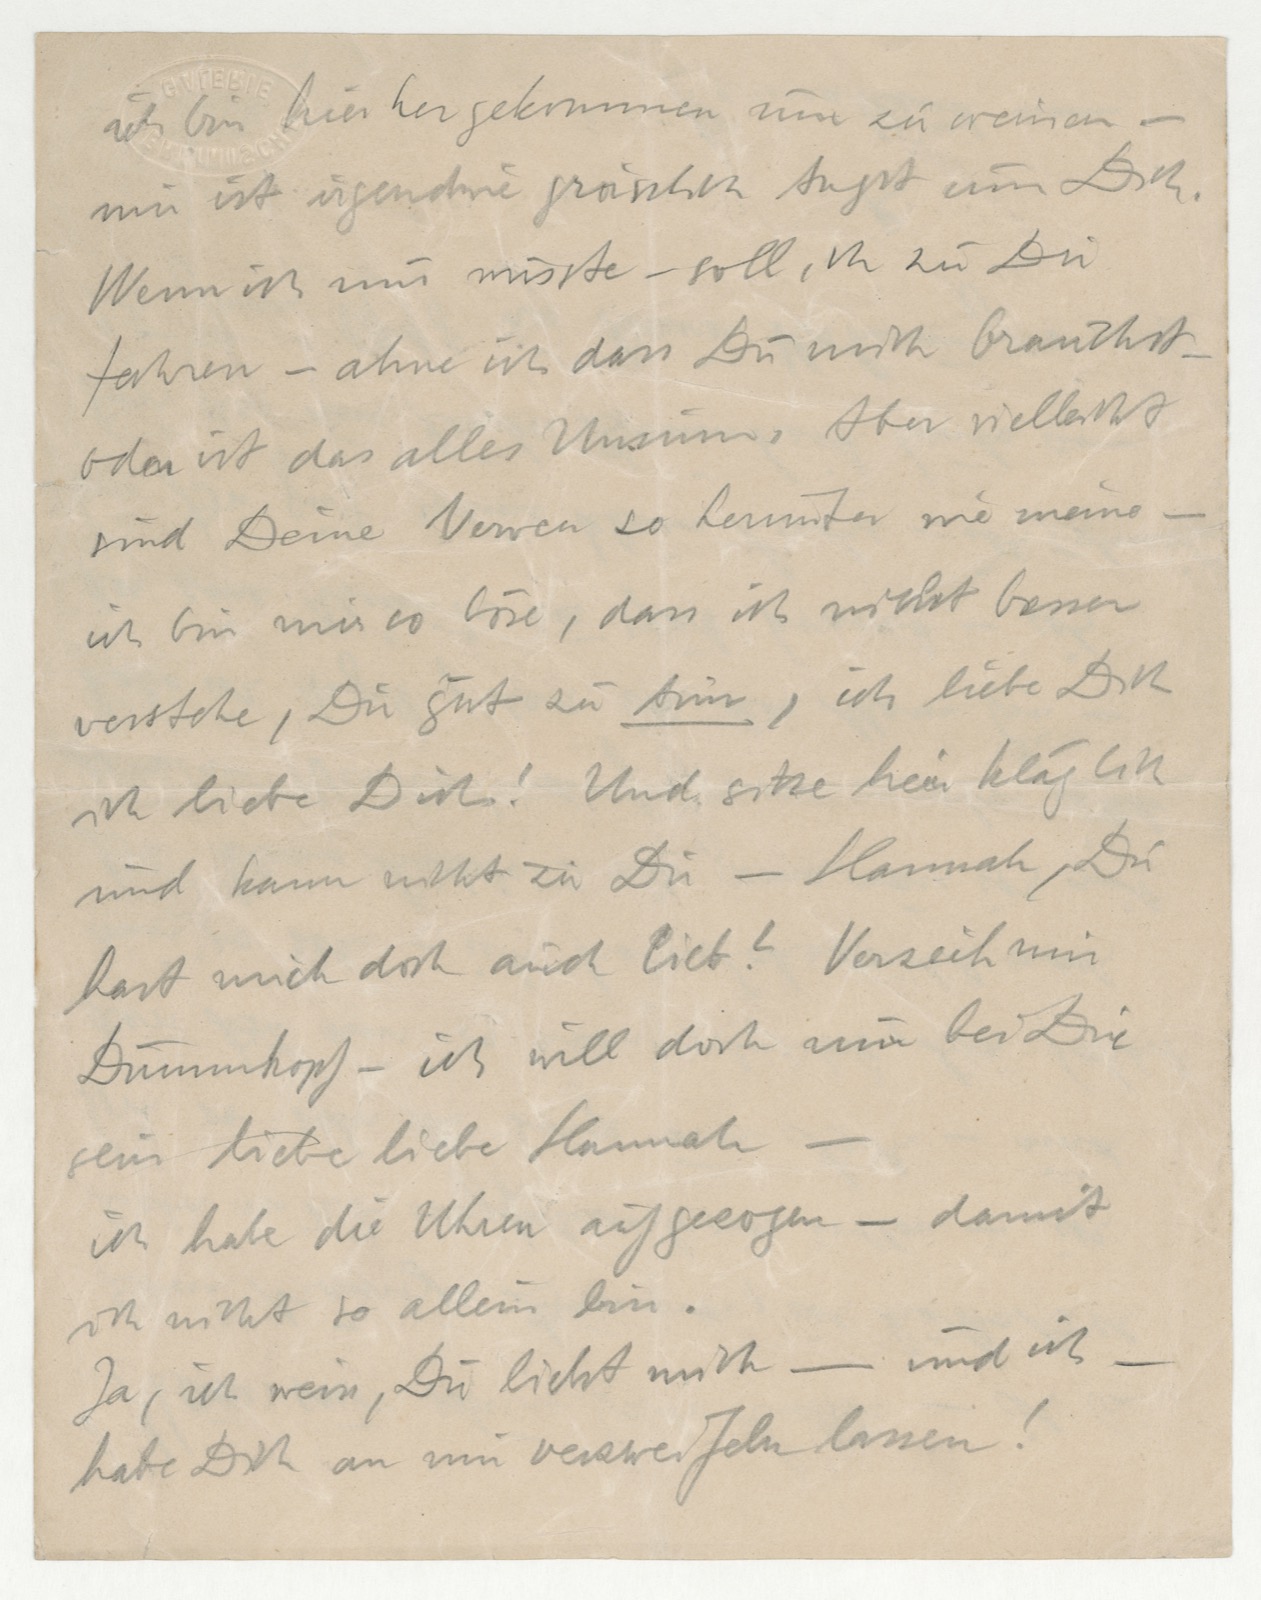 ich bin hierhergekommen um zu weinen –
mir ist irgendwie grässlich Angst um Dich.
Wenn ich nur wüsste – soll ich zu Dir
fahren – ahne ich dass Du mich brauchst –
oder ist das alles Unsinn. Aber vielleicht
sind Deine Nerven so herunter wie meine –
ich bin mir so böse, dass ich nicht besser
verstehe, Dir gut zu tun, ich liebe Dich
ich liebe Dich! Und sitze hier kläglich
und kann nicht zu Dir – Hannah, Du
hast mich doch auch lieb? Verzeih mir
Dummkopf – ich will doch nur bei Dir
sein liebe liebe Hannah –
ich habe die Uhren aufgezogen – damit
ich nicht so allein bin.
Ja, ich weiss, Du liebst mich – und ich –
habe Dich an mir verzweifeln lassen!